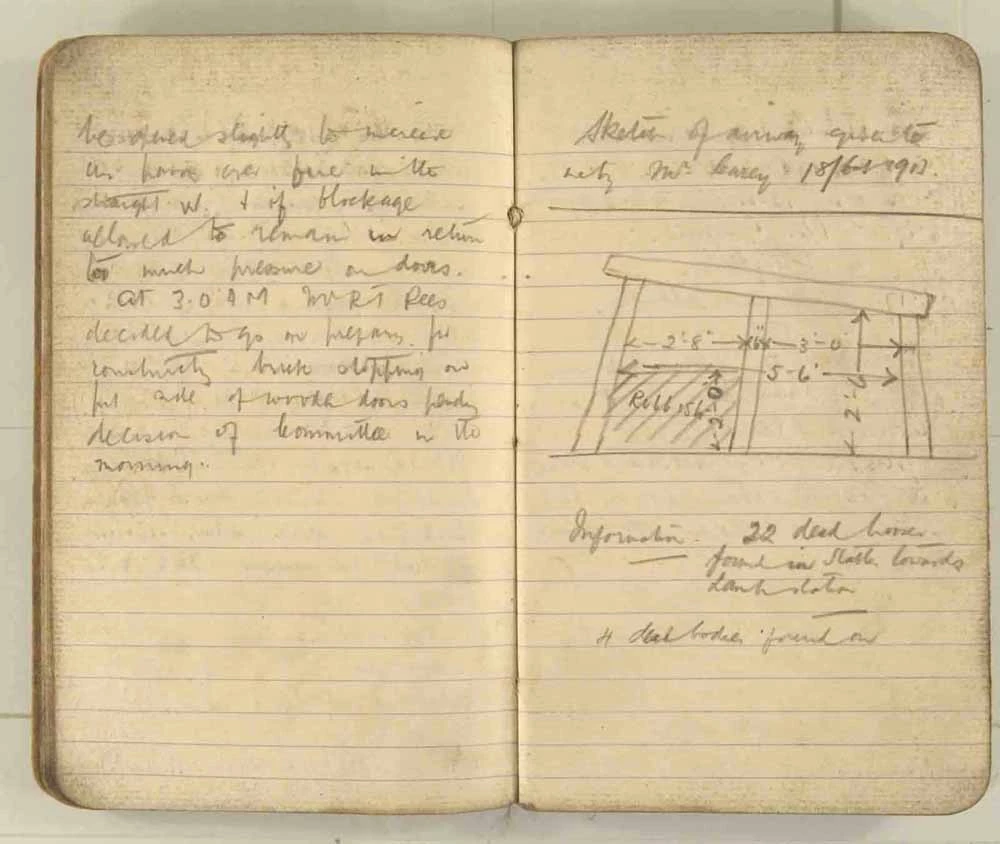 be opened slightly to increase
the power over fire in the
straight vt. & if blockage
allowed to remain in return
too much pressure on doors.
At 3.0 AM Mr R T Rees
decided to go on preparing for
constructing brick stopping on
far side of wooden doors pending
decision of Committee in the
morning.
Sketch of airway given to
me by Mr Carey 18/
2'-8" 6" 3'-0
5-6"
Rubbish 2-0 2'-
Information. 22 dead horses
found in Stables towards
Lamp station
4 dead bodies found on